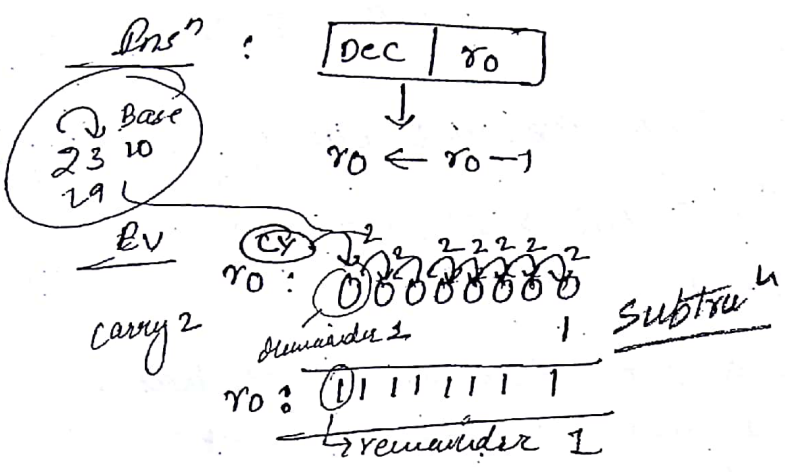 Insⁿ : DEC | r0
r0 ← r0 – 1
Base
23 10
19
EV CY 2 2 2 2 2 2 2 2
r0 : 0 0 0 0 0 0 0 0
Carry 2
remainder 1 1 Subtraⁿ
r0 : 1 1 1 1 1 1 1 1
→ remainder 1